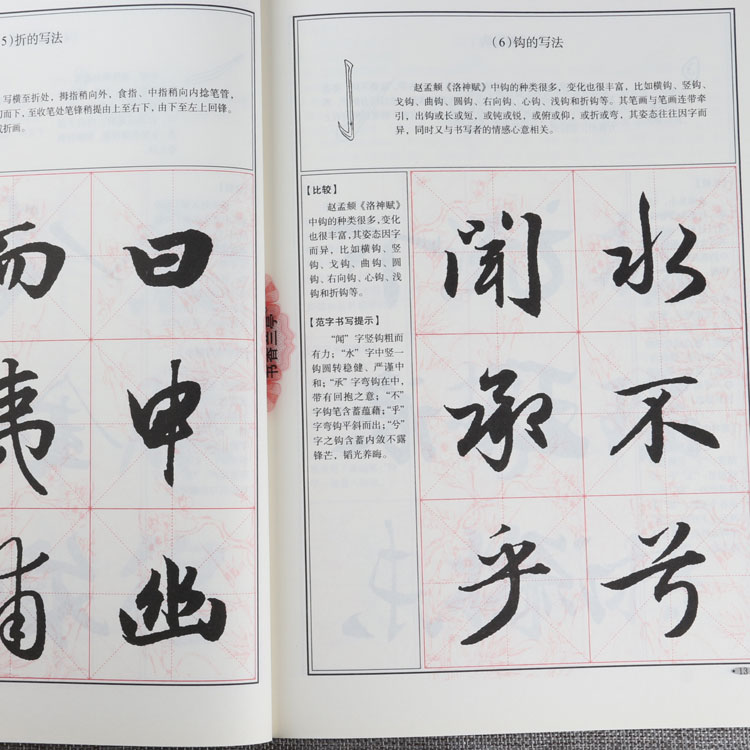 5)折的写法
写横至折处，拇指稍向外，食指、中指稍向内捻笔管，
而下，至收笔处笔锋稍提由上至右下，由下至左上回锋。
折画。
而 曰
申
幽
书香兰亭
(6)钩的写法
赵孟頫《洛神赋》中钩的种类很多，变化也很丰富，比如横钩、竖钩、
戈钩、曲钩、圆钩、右向钩、心钩、浅钩和折钩等。其笔画与笔画连带牵
引，出钩或长或短，或钝或锐，或俯或仰，或折或弯，其姿态往往因字而
异，同时又与书写者的情感心意相关。
【比较】
赵孟頫《洛神赋》
中钩的种类很多，变化
也很丰富，其姿态因字
而异，比如横钩、竖
钩、戈钩、曲钩、圆
钩、右向钩、心钩、浅
钩和折钩等。
【范字书写提示】
“闻”字竖钩粗而
有力；“水”字中竖一
钩圆转稳健、严谨中
和；“承”字弯钩在中，
带有回抱之意；“不”
字钩笔含蓄蕴藉；“乎”
字弯钩平斜而出；“兮”
字之钩含蓄内敛不露
锋芒，韬光养晦。
闻 水
承 不
乎 兮
13